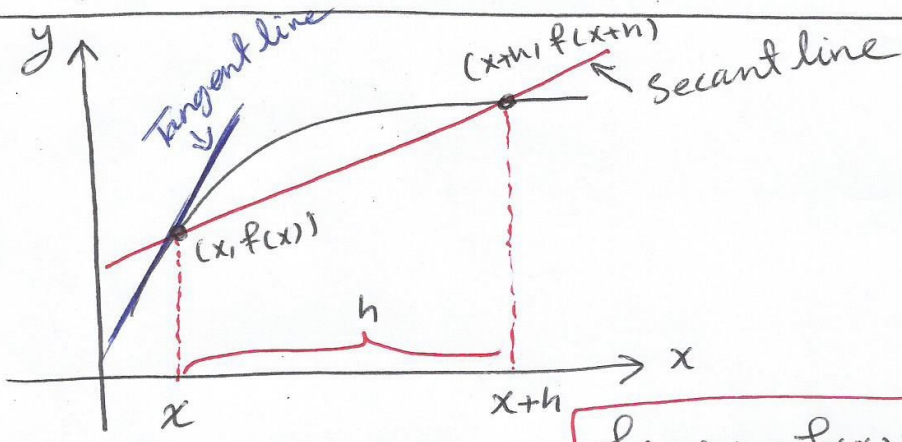 y
Tangent line
(x+h, f(x+h)
Secant line
(x, f(x))
h
x
x
x+h